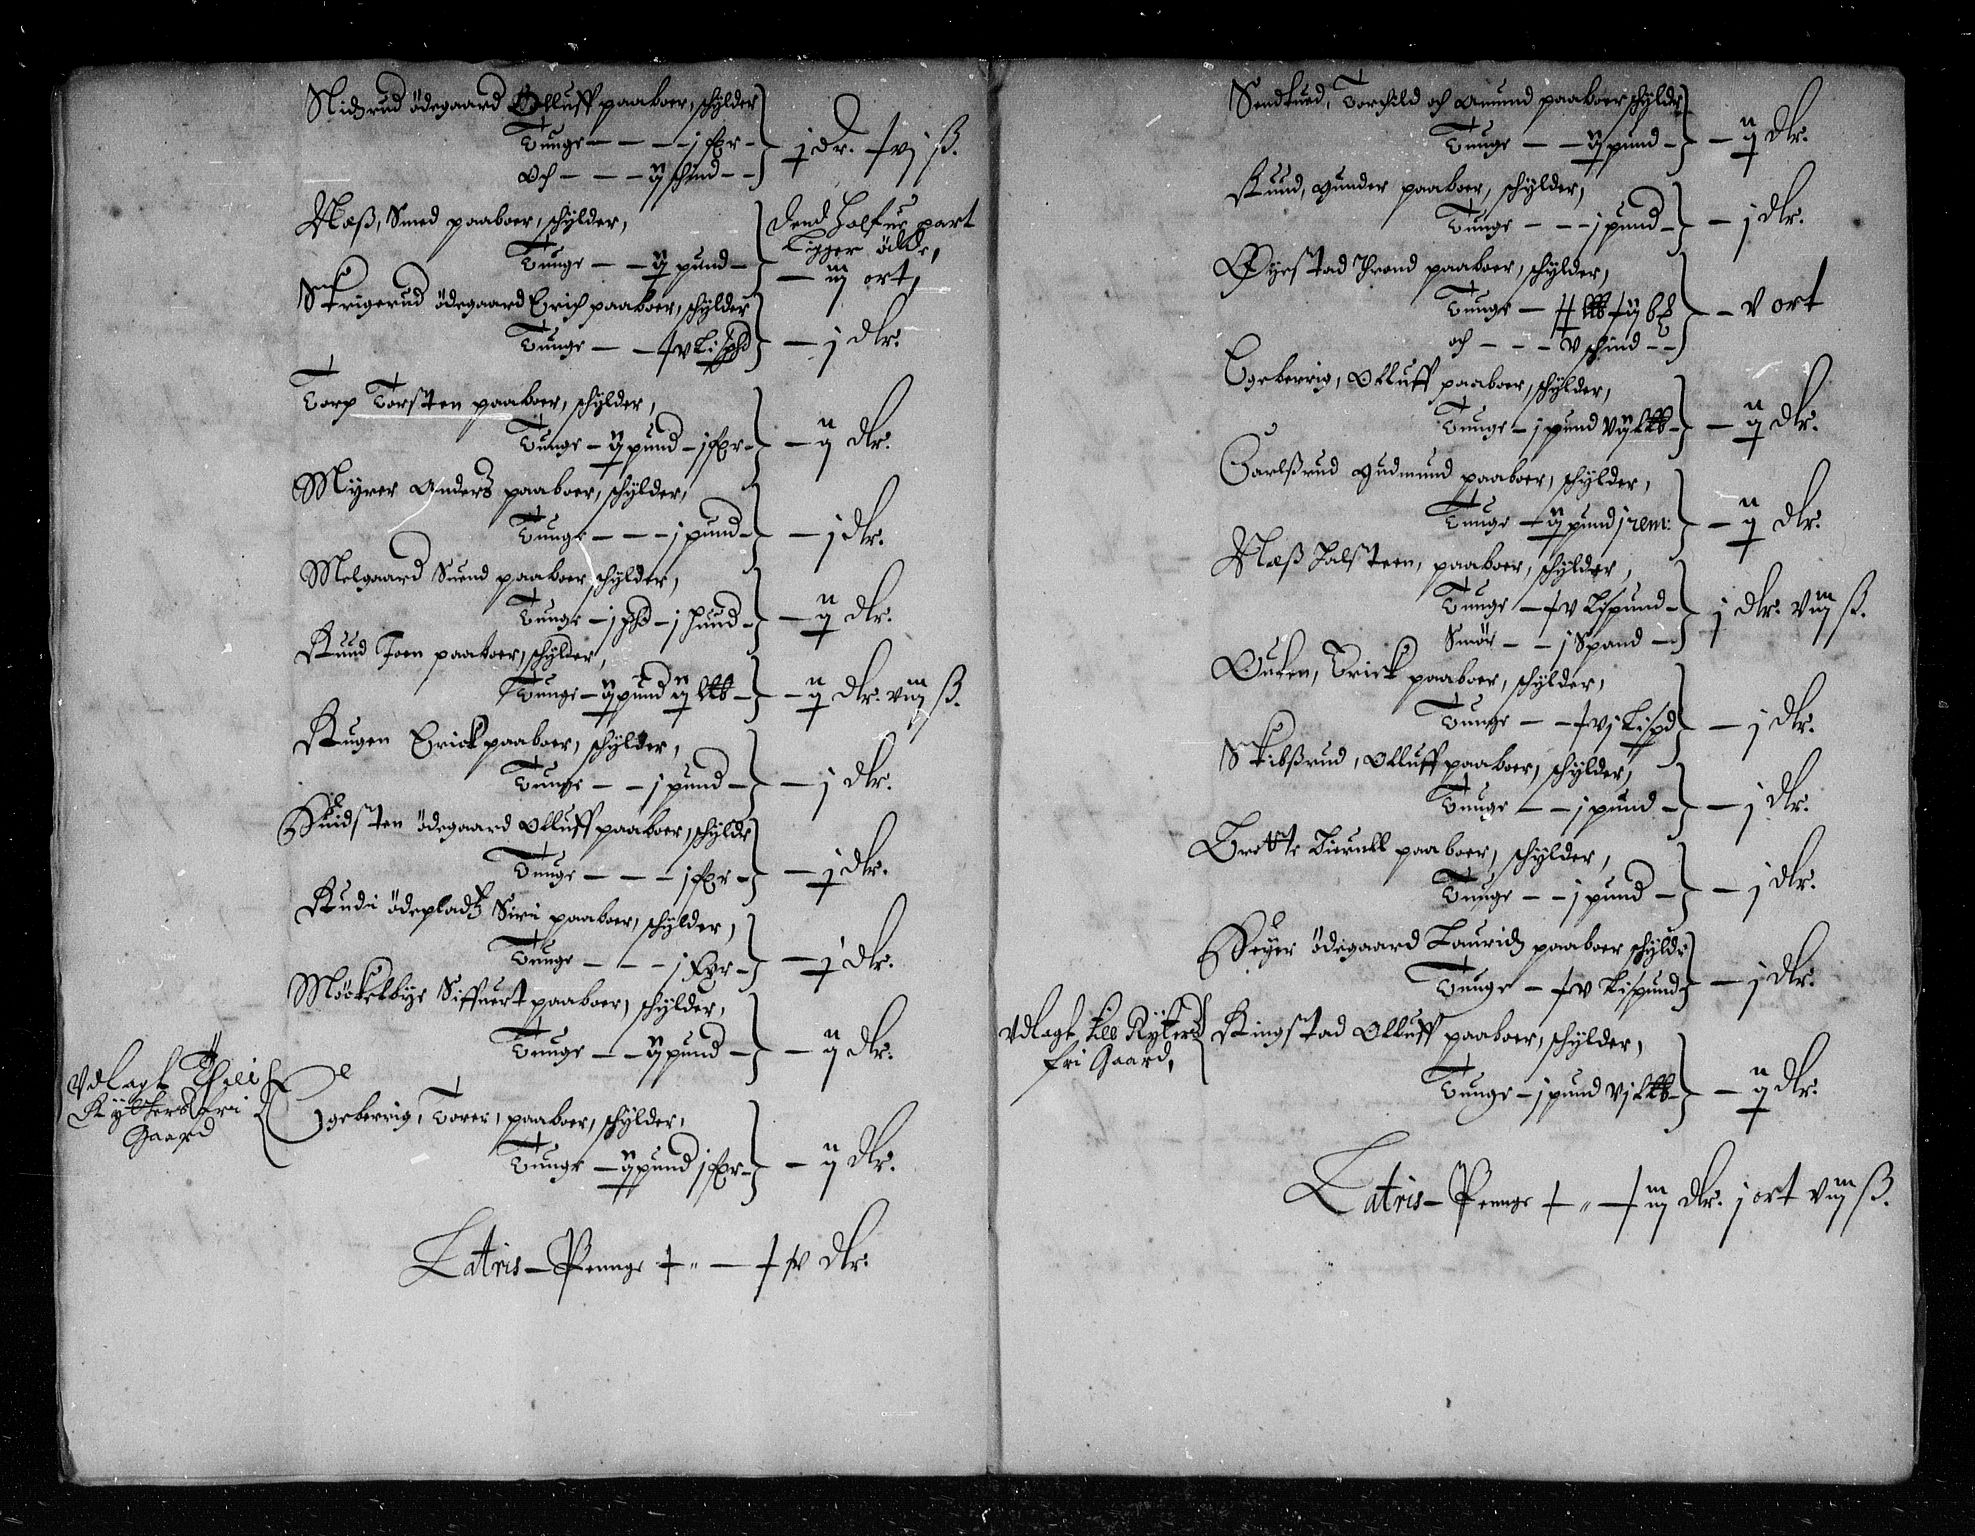 Nidzrud ödegaard Olluff paaboer, schylder
Tunge - - - - j fxr -
och - - - ij schind - -
j dr. + vj ß.
Næß, Smed paaboer, schylder,
Tunge - - ij pund -
Dend halfue part
Ligger öde,
- iij ort,
Skrigerud ödegaard Erich paaboer, schylder
Tunge - - + v Lispd
- j dlr.
Torp Torsten paaboer, schylder,
Tunge - ij pund - j fxr -
- ij dlr.
Myrer Anders paaboer, schylder,
Tunge - - - j pund -
- j dlr.
Melgaard Suend paaboer schylder,
Tunge - j phd - j huud -
- ij dlr.
Ruud Joen paaboer, schylder,
Tunge - ij pund ij ltb -
- ij dlr. viij ß.
Rugen Erick paaboer, schylder,
Tunge - - j pund -
- j dlr.
Huidsten ödegaard Olluff paaboer, schyldr
Tunge - - - - j fxr -
- j dlr.
Rudi ödepladtz Siri paaboer, schylder,
Tunge - - - j fxr -
- j dlr.
Möckelbye Siffuert paaboer, schylder,
Tunge - - ij pund -
- ij dlr.
Vdlagt Thill
Rytters fri
Gaard
Egeberrig, Torer, paaboer, schylder,
Tunge - ij pund j fxr -
- ij dlr.
Latris - Penge + „ - + iv dlr.
Sendtued, Torchild och Amund paaboer schyldr
Tunge - - ij pund -
- ij dlr.
Ruud, Gunder paaboer, schylder,
Tunge - - - j pund -
- j dlr.
Øyestad Trond paaboer, schylder,
Tunge -
och - - - v schind - -
- v ort
Egeberrig, Olluff paaboer, schylder,
Tunge - j pund vij ltb -
- ij dlr.
Carlßrud Gudmund paaboer, schylder,
Tunge - ij pund j rem:
- ij dlr.
Næß Halsteen, paaboer, schylder,
Tunge - + v Lispund -
Smör - - j Spand -
j dlr. viij ß.
Ouken, Erick paaboer, schylder,
Tunge - - + vj Lispd
- j dlr.
Skibßrud, Olluff paaboer, schylder,
Tunge - - - j pund -
- j dlr.
Brotte Biernll paaboer, schylder,
Tunge - - - j pund -
- j dlr.
Heyer ödegaard Lauridz paaboer schyldr
Tunge - + v Lispund
- j dlr.
Vdlagt till Rytters
fri Gaard,
Ringstad Olluff paaboer, schylder,
Tunge - j pund vj ltb -
- ij dlr.
Latris - Penge + „ - + iij dlr. j ort viij ß.